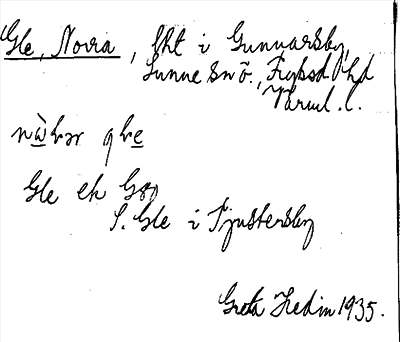 Gle, Norra, fht i Gunnarsby,
Sunne sn ö., Fryksd. hd
Värml. l.
Gle ek Gsp
S. Gle i Tjustersby
Greta Hedin 1935.